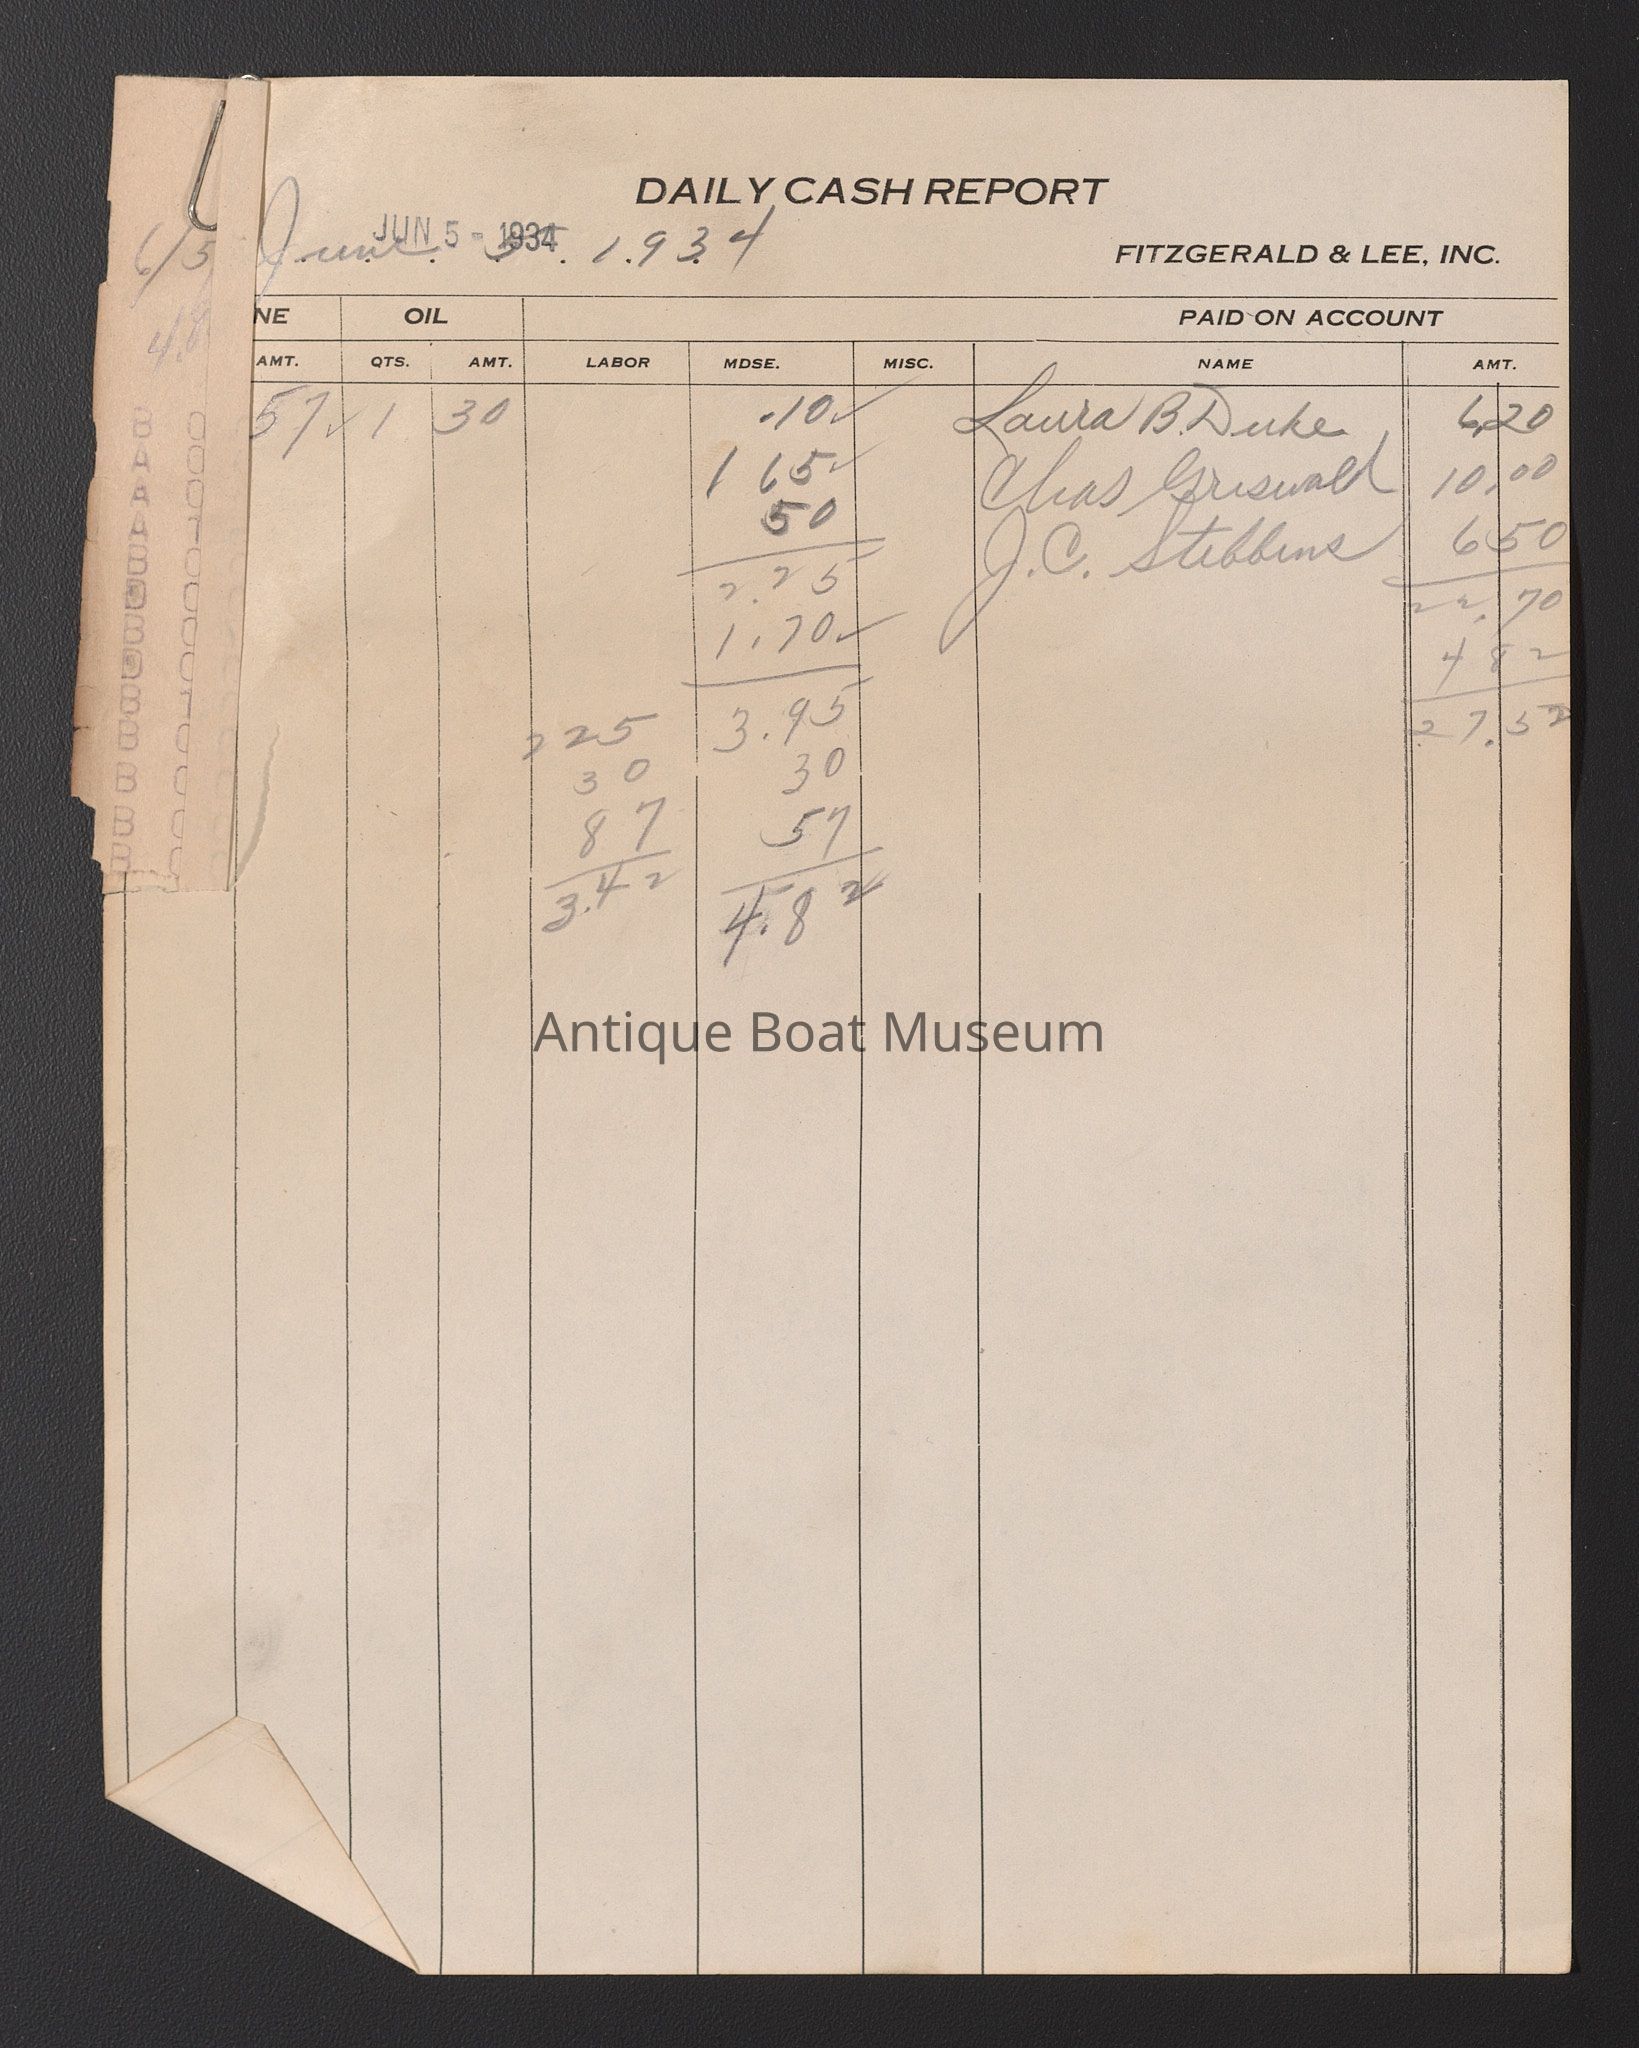 DAILY CASH REPORT
JUN 5 - 1934
June 5. 1934
6/5
FITZGERALD & LEE, INC.
4.8
NE OIL PAID ON ACCOUNT
AMT. QTS. AMT. LABOR MDSE. MISC. NAME AMT.
57 ✓ 1 30 .10 ✓ Laura B. Duke 6.20
1 65 ✓ Chas Griswald 10.00
50 J.C. Stebbins 6 50
2.25 22.70
1.70 ✓ 4 82
225 3.95 27.52
30 30
87 57
3.42 4.82
Antique Boat Museum